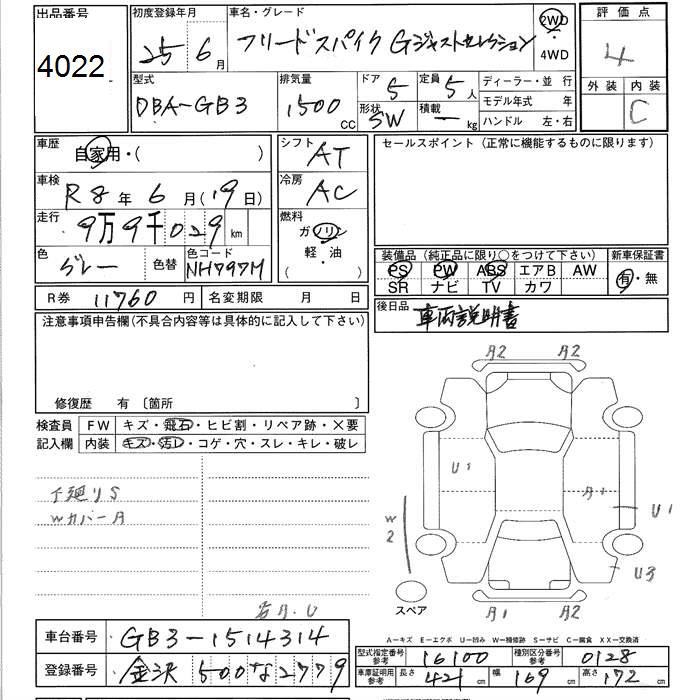 出品番号
4022
初度登録年月
25年 6月
車名・グレード
フリードスパイク Gジャストセレクション
2WD
・
4WD
評価点
4
外装 内装
C
型式
DBA-GB3
排気量
1500 CC
ドア 5
形状 SW
定員 5人
積載 ー kg
ディーラー・並行
モデル年式 年
ハンドル 左・右
車歴
自家用・( )
シフト
AT
車検
R8年 6月(19日)
冷房
AC
走行
9万9千029 km
燃料
ガソリン
軽・油
( )
色
グレー
色替
色コード
NH797M
R券 11760円
名変期限 月 日
セールスポイント(正常に機能するものに限ります)
装備品(純正品に限り○をつけて下さい)
新車保証書
PS PW ABS エアB AW
SR ナビ TV カワ
有・無
後日品
車両説明書
注意事項申告欄(不具合内容等は具体的に記入して下さい)
修復歴 有 〔箇所 〕
検査員
記入欄
FW キズ・飛石・ヒビ割・リペア跡・×要
内装 キズ・汚レ・コゲ・穴・スレ・キレ・破レ
下廻りS
Wカバー A
A2 A2
U1
A1
U1
W2
U3
スペア
A1 A2
A-キズ E-エクボ U-凹み W-補修跡 S-サビ C-腐食 XX-交換済
車台番号 GB3-1514314
登録番号 金沢 500な2779
型式指定番号
参考
16100
種別区分番号
参考
0128
車庫証明用
参考
長さ 421cm 幅 169cm 高さ 172cm